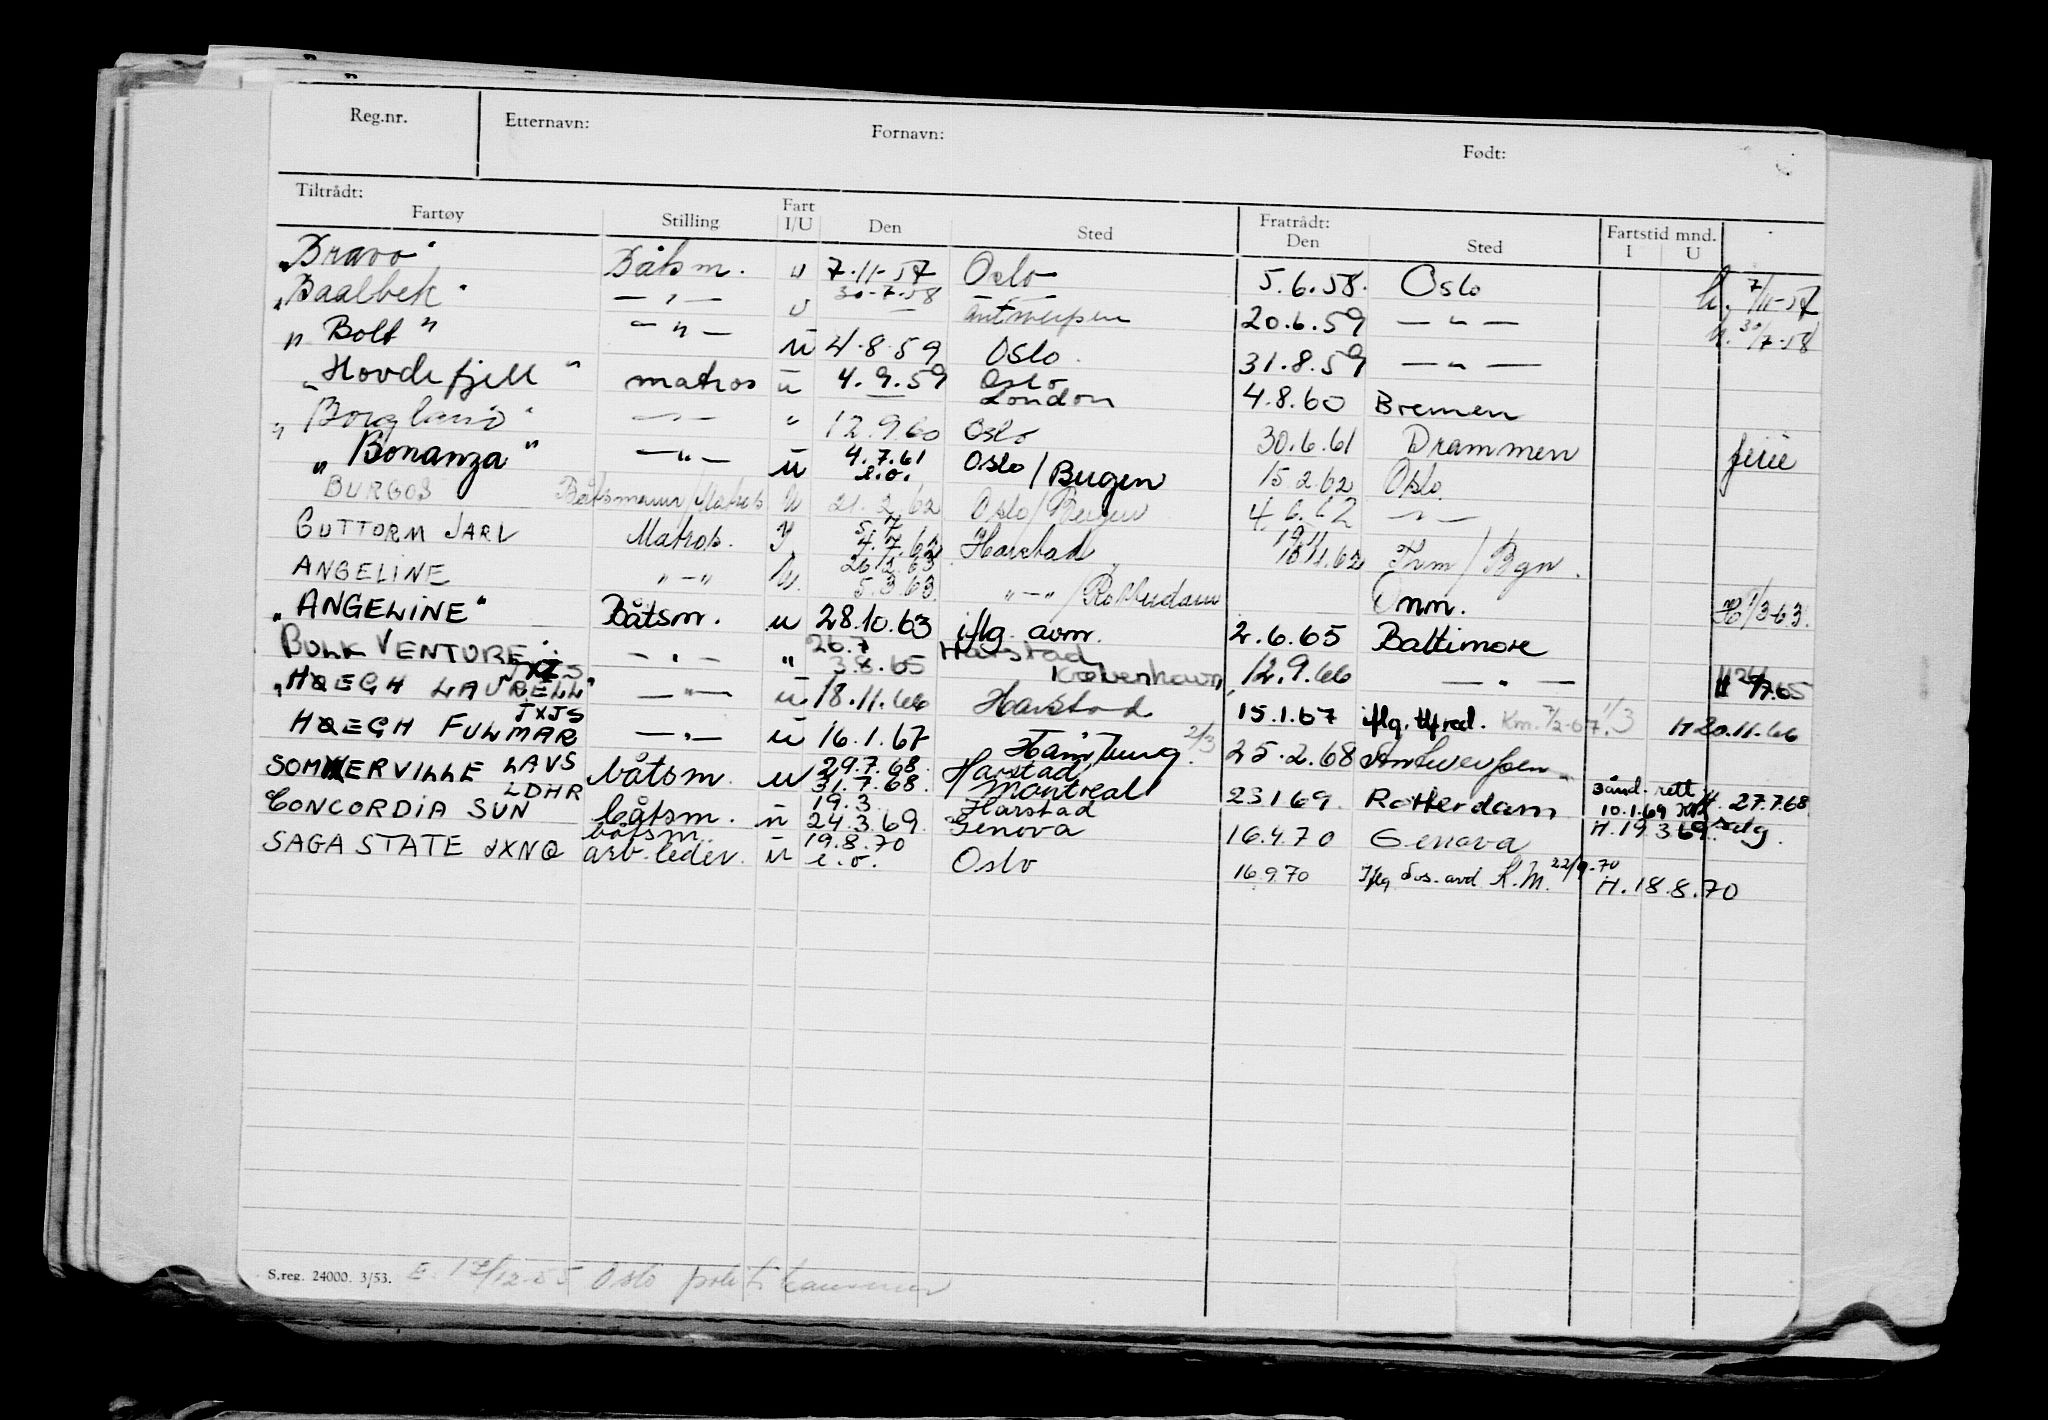 Reg.nr. Etternavn: Fornavn: Født:
Tiltrådt: Fratrådt: Fartstid mnd.
Fartøy Stilling Fart I/U Den Sted Den Sted I U
"Bravo" Båtsm. u 7-11-57 Oslo 5.6.58. Oslo h. 7/11-57
"Baalbek" — " — u 30-7-58 Antwerpen 20.6.59 — " — h. 30/7-58
"Bolt" — " — u 4.8.59 Oslo. 31.8.59 — " —
"Hovdefjell" matros u 4.9.59 Oslo London 4.8.60 Bremen
"Borgland" — " — " 12.9.60 Oslo 30.6.61 Drammen ferie
"Bonanza" — " — u 4.7.61 e.o. Oslo/Bergen 15.2.62 Oslo
BURGOS Båtsmann/Matros U 21.2.62 Oslo/Bergen 4.6.62 — " —
GUTTORM JARL Matros. I 5.7 4.7.62 Harstad 19.11 18.11.62 Trm/Bgn.
ANGELINE " — " U. 26.2.63 5.3.63 " — " /Rotterdam Onm. H 1/3-63.
"ANGELINE" Båtsm. u 28.10.63 iflg. avm. 2.6.65 Baltimore
BULK VENTURE — " — " 26.7 3.8.65 Harstad København 12.9.66 — " —
"HØEGH LAURELL" JXZS — " — u 18.11.66 Harstad 15.1.67 iflg. Km. 7/2-67. 1/3 H 20.11.66
HØEGH FULMAR JXJS — " — u 16.1.67 Hamburg 2/3 25.2.68 Antwerpen
SOMMERVILLE LAVS båtsm. u 29.7.68. 31.7.68. Harstad Montreal 23.1.69. Rotterdam 10.1.69 H. 27.7.68
CONCORDIA SUN LDHR båtsm. u 19.3. 24.3.69. Harstad Genova 16.4.70 Genova H.19.3.69. salg.
SAGA STATE JXNQ båtsm. arb.leder. u 19.8.70 e.o. Oslo 16.9.70 Iflg K.M. 22/9-70 H.18.8.70
S.reg. 24000. 3/53. E. 17/12-55 Oslo politikammer